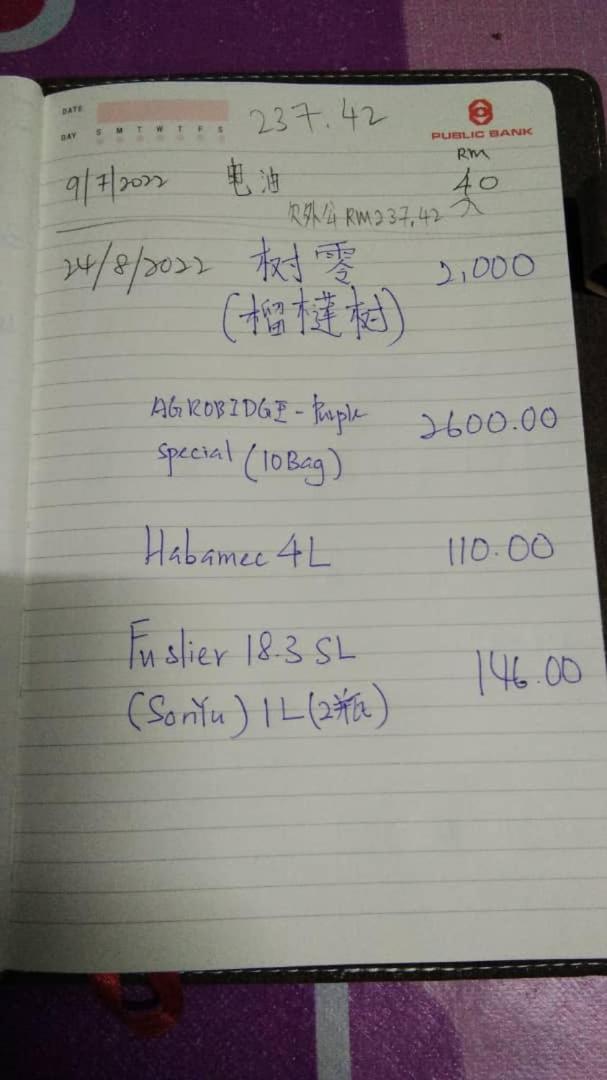 DATE
237.42
DAY S M T W T F S
PUBLIC BANK
RM
9/7/2022 电油 40
欠外公 RM237.42 入
24/8/2022 树零 2,000
(榴梿树)
AGROBIDGE - Purple 2600.00
special (10Bag)
Habamec 4L 110.00
Fuslier 18.3 SL
146.00
(SonYu) 1L (2瓶)